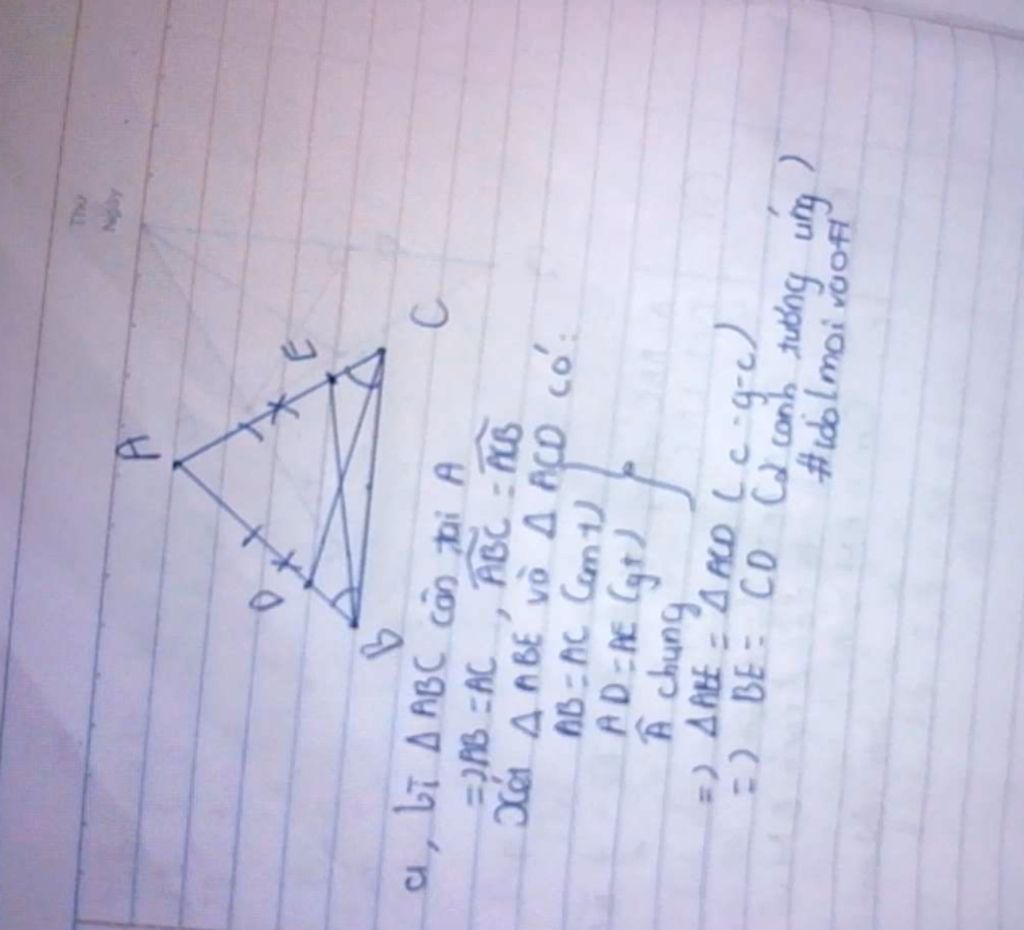 Thứ
Ngày
A
D
E
B
C
a, Vì Δ ABC cân tại A
=> AB = AC, ABC = ACB
Xét Δ ABE và Δ ACD có:
AB = AC (cmt)
AD = AE (gt)
Â chung
=> ΔABE = ΔACD (c-g-c)
=> BE = CD (2 cạnh tương ứng)